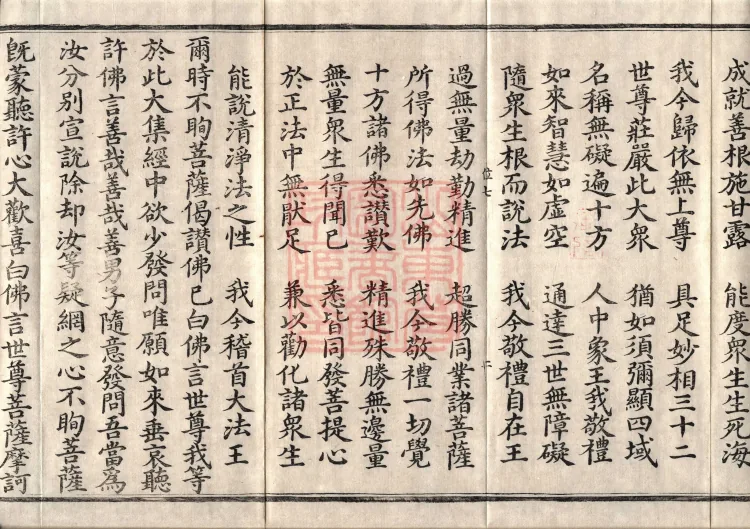 成就善根施甘露　能度衆生生死海
我今歸依無上尊　具足妙相三十二
世尊莊嚴此大衆　猶如須彌顯四域
名稱無礙遍十方　人中象王我敬禮
如來智慧如虛空　通達三世無障礙
隨衆生根而說法　我今敬禮自在王
位七　二
過無量劫勤精進　超勝同業諸菩薩
所得佛法如先佛　我今敬禮一切覺
十方諸佛悉讚歎　精進殊勝無邊量
無量衆生得聞已　悉皆同發菩提心
於正法中無厭足　兼以勸化諸衆生
能說清淨法之性　我今稽首大法王
爾時不眴菩薩偈讚佛已白佛言世尊我等
於此大集經中欲少發問唯願如來垂哀聽
許佛言善哉善哉善男子隨意發問吾當爲
汝分別宣說除却汝等疑網之心不眴菩薩
旣蒙聽許心大歡喜白佛言世尊菩薩摩訶